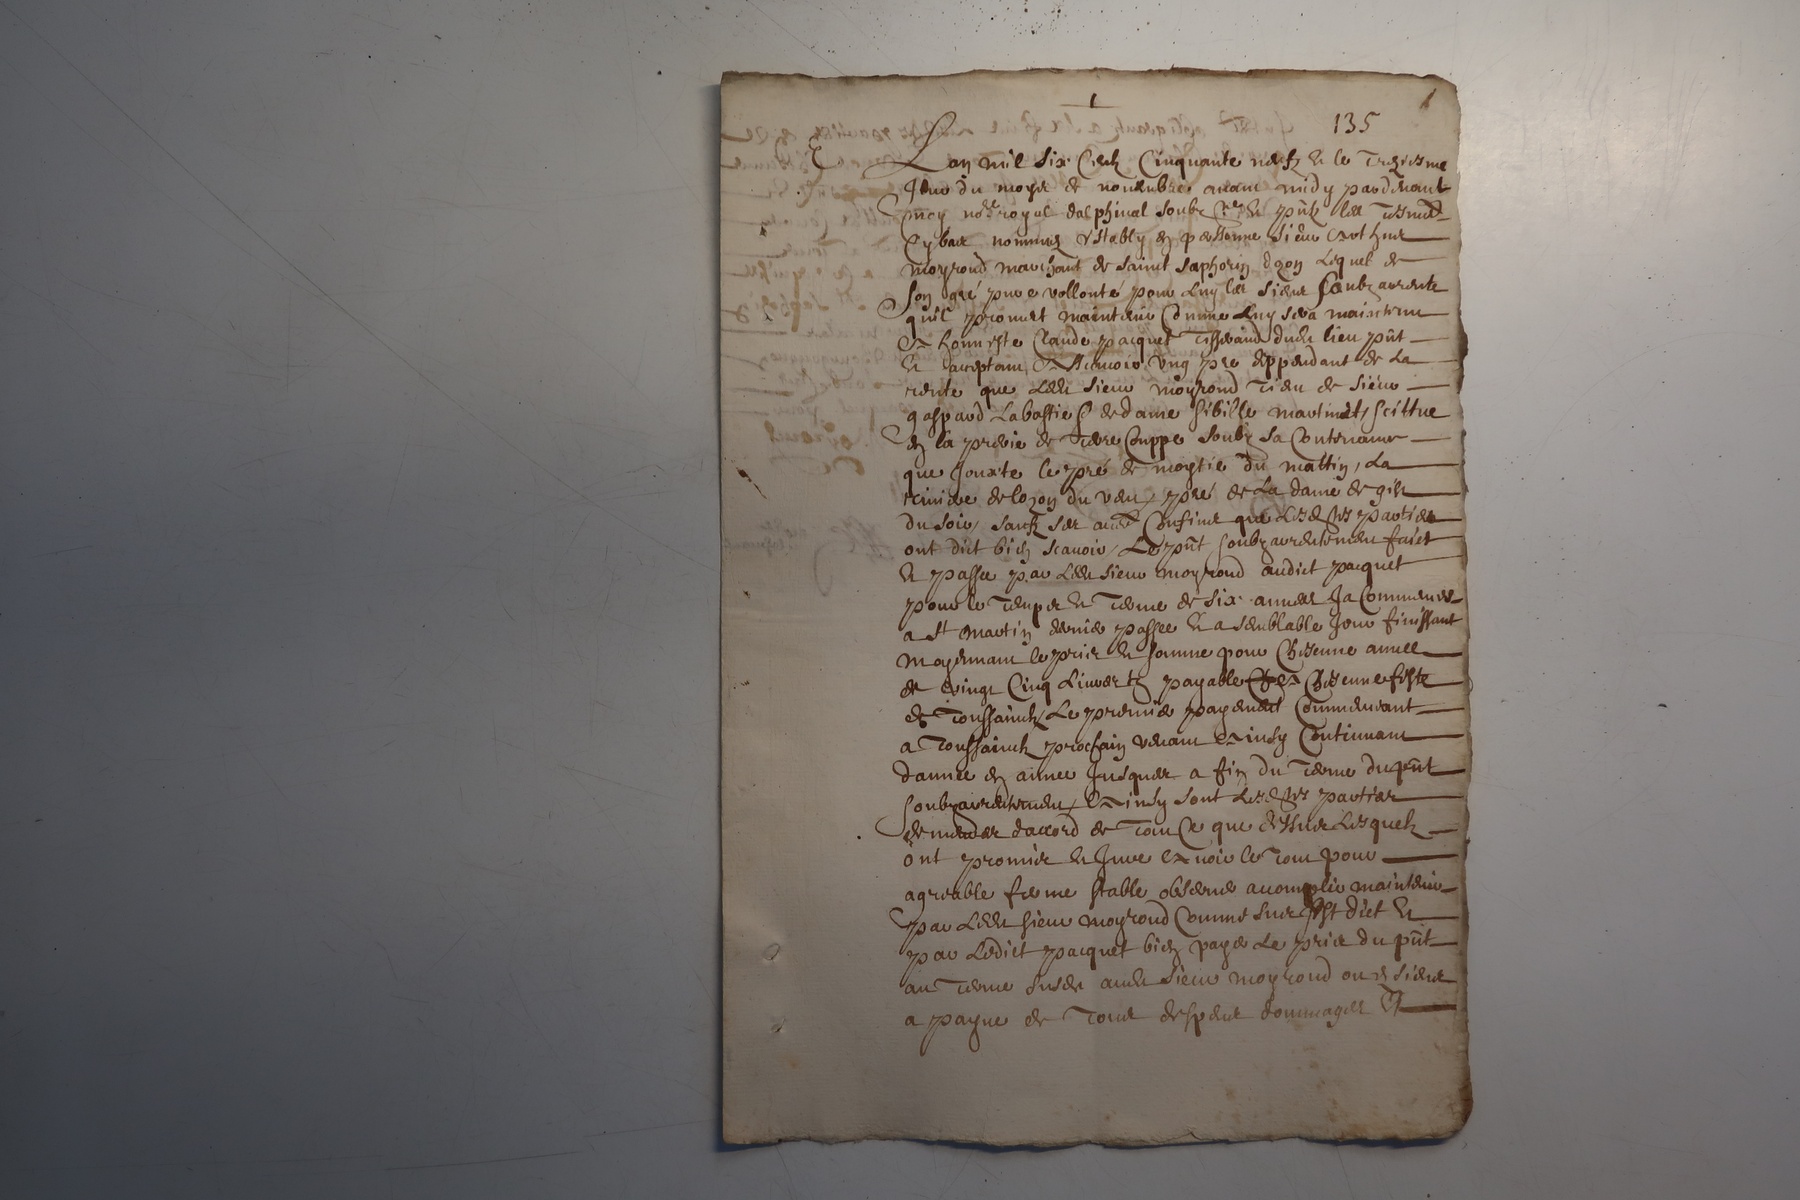 135
Lan mil six Centz Cinquante neufz & le Treziesme
Jour du moys de novembre avant midy pardevant
moy no.re royal dalphinal soubz.ne & pntz les Tesmoings
Cy bas nommez Estably en personne sieur
moyroud marchant de saint saphorin dozon Lequel de
son gré pure vollonté pour Luy les siens soubzarrente
quil promect maintenir Comme Luy sera maintenu
Ez honneste Claude pacquet Tisserand dud. lieu pnt
& acceptant, Ez Scavoir Ung pre deppendant de La
rente que Led. sieur moyroud Tient de sieur
gaspard Labastie & de dame sibille martinet, scittue
en la prerie de Terre Couppe soubz sa Contenance
que Jouxte le pré de moytié du mattin, La
rivière de lozon du vent, pré de La dame de
du soir, sauf ses aut. Confins que Lesd. parties
ont dict bien scavoir, Le pnt soubzarrentement faict
& passee par Led. sieur moyroud audict pacquet
pour le Temps & Terme de six annees Ja Commencees
a st martin dernier passee & a semblable Jour finissant
moyennant le prix & somme pour Chascune annee
de vingt Cinq Livres tz payable Chascune feste
de Toussainctz, Le premier payement Commencant
a Toussainctz prochain venant & ainsy Continuant
dannee en annee Jusques a fin du Terme du pnt
soubzarrentement, & ainsy sont Lesd. parties
demeurees daccord de Tout Ce que dessus Lesquelz
ont promis & Jure avoir le Tout pour
agreable ferme stable observer accomplir maintenir
par Led. sieur moyroud Comme sus est dict &
par Ledict pacquet bien payer Le prix du pnt
au Terme susd. aud. sieur moyroud ou es siens
a payne de Tous despens dommages &